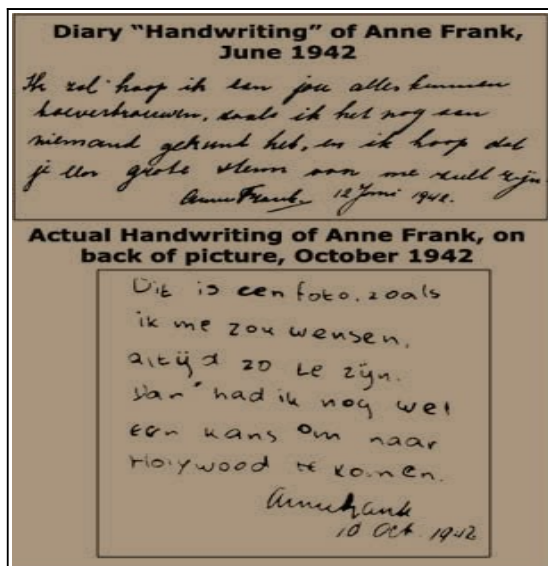 Diary “Handwriting” of Anne Frank,
June 1942
Ik zal hoop ik aan jou alles kunnen
toevertrouwen, zoals ik het nog aan
niemand gekund heb, en ik hoop dat
je een grote steun van me zult zijn.
Anne Frank. 12 Juni 1942.
Actual Handwriting of Anne Frank, on
back of picture, October 1942
Dit is een foto, zoals
ik me zou wensen,
altijd zo te zijn.
Dan had ik nog wel
een kans om naar
Holywood te komen.
Annefrank
10 Oct. 1942